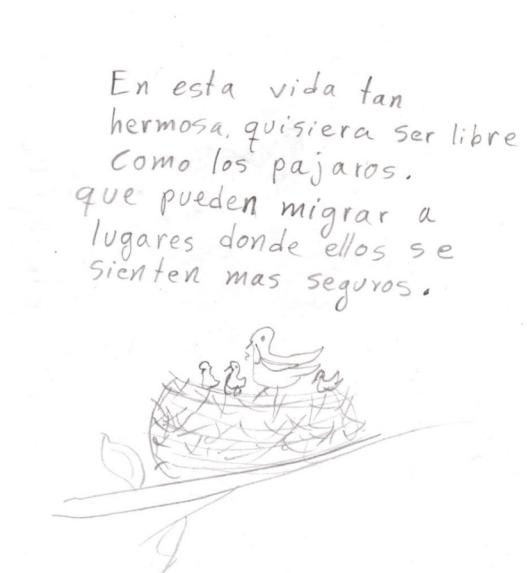 En esta vida tan
hermosa, quisiera ser libre
como los pajaros.
que pueden migrar a
lugares donde ellos se
sienten mas seguros.